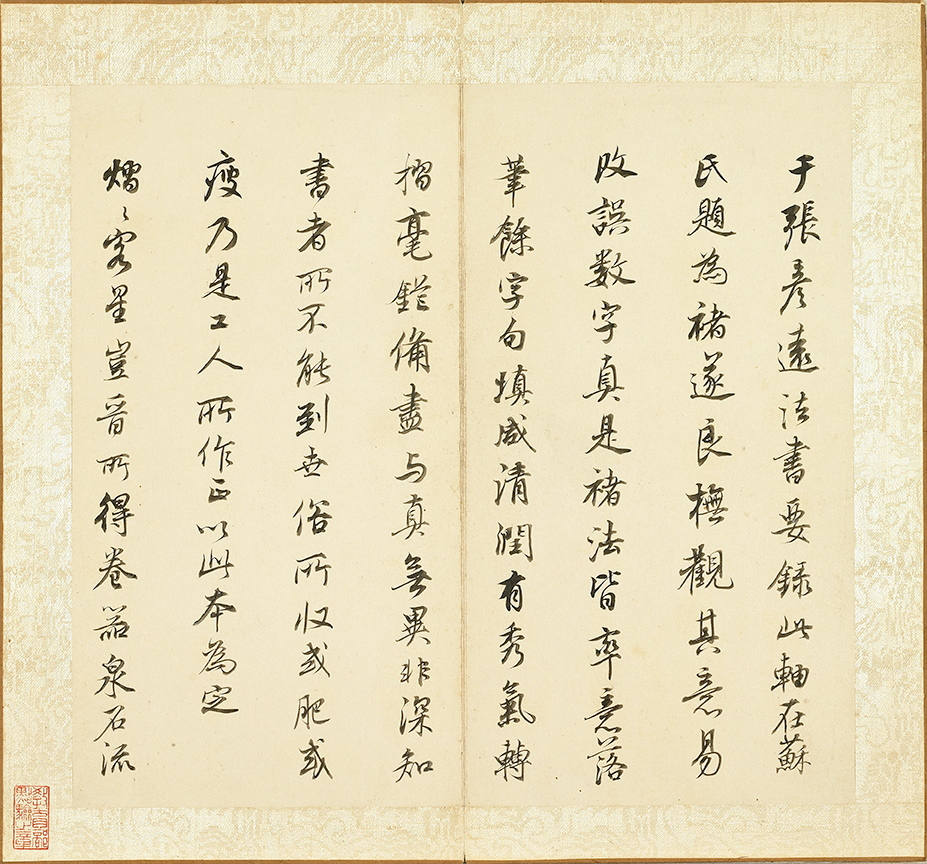 于張彥遠法書要錄此軸在蘇
氏題為褚遂良橅觀其意易
改誤数字真是褚法皆率意落
筆餘字勾填咸清潤有秀氣轉
摺毫鋩備盡与真無異非深知
書者所不能到世俗所收或肥或
瘦乃是工人所作正以此本為定
熠〻客星豈晉所得卷器泉石流